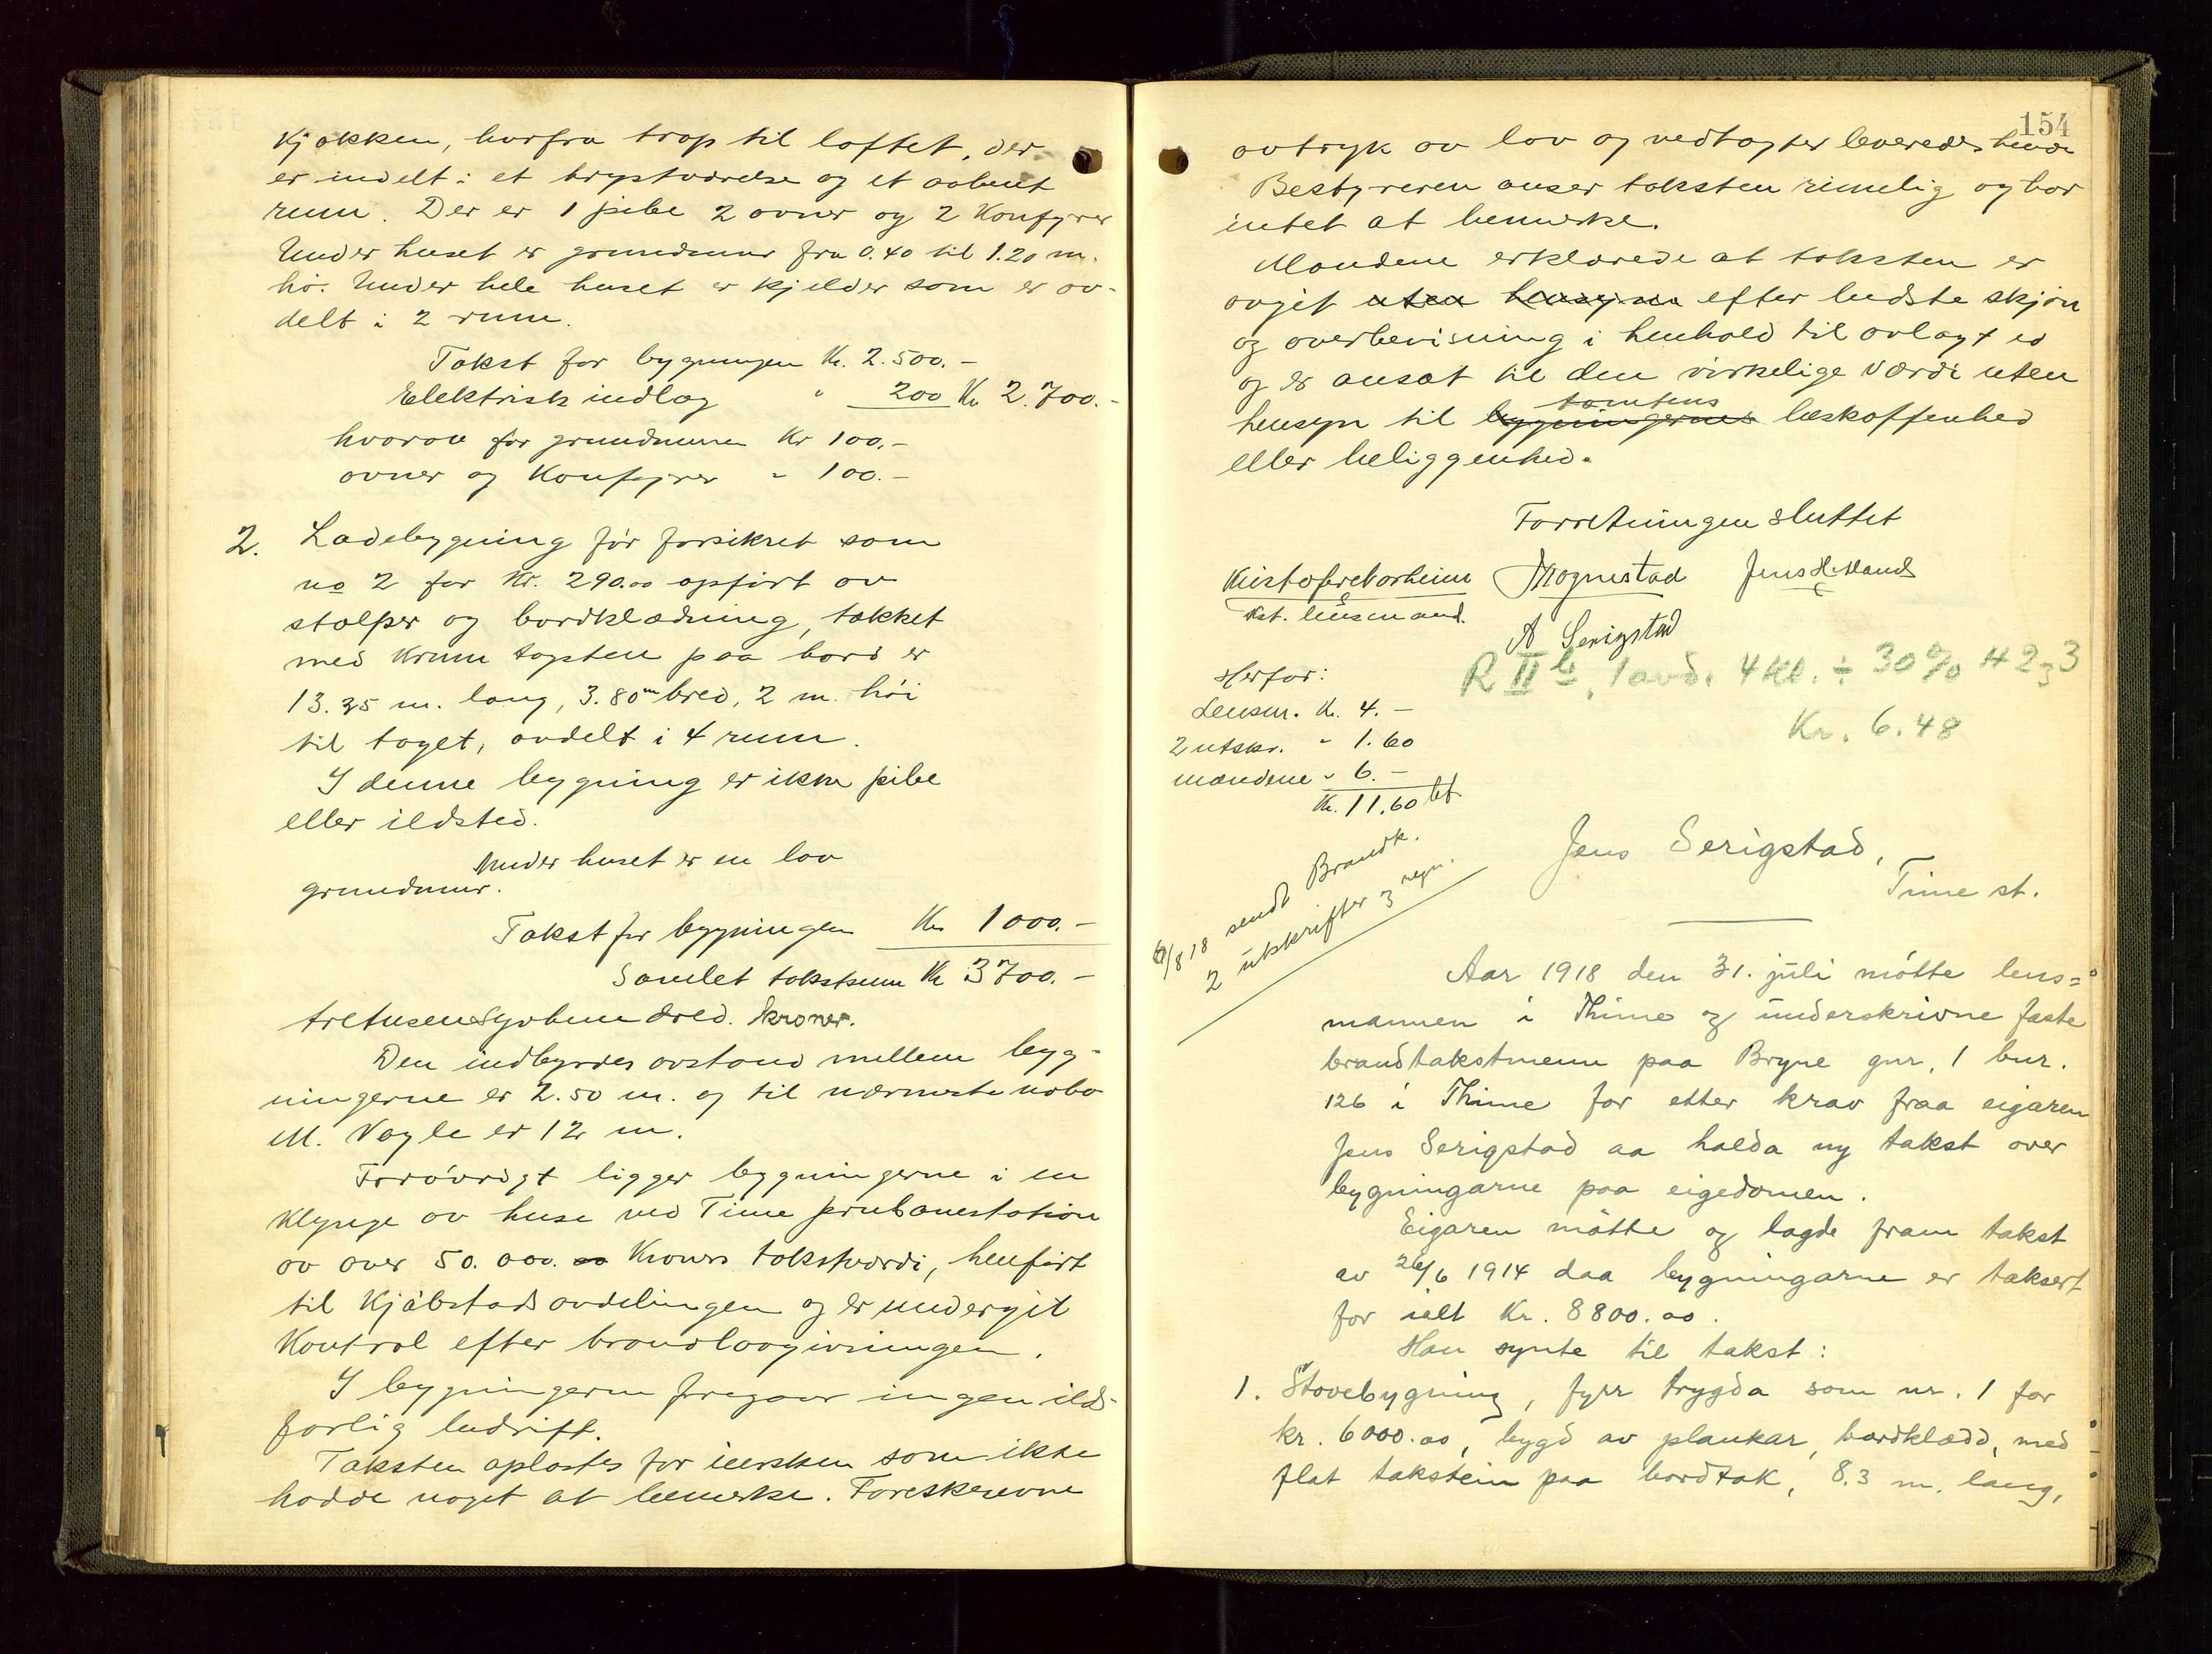 kjøkken, hvorfra trap til loftet, der
er indelt i et kvistværelse og et aabent
rum. Der er 1 pibe 2 ovner og 2 Konfyrer
Under huset er grundmur fra 0.40 til 1.20 m.
høi. Under hele huset er kjelder som er av-
delt i 2 rum.
Takst for bygningen Kr. 2.500.-
Elektrisk indlæg " 200 Kr 2.700.-
hvorav for grundmuren Kr 100,-
ovner og Konfyrer " 100.-
2. Ladebygning før forsikret som
no 2 for Kr. 290.00 opført av
stolper og bordklædning, tækket
med krum tagsten paa bord er
13.35 m. lang, 3.80 m bred, 2 m. høi
til taget, avdelt i 4 rum.
I denne bygning er ikke pibe
eller ildsted.
Under huset er en lav
grundmur.
Takst for bygningen Kr 1000.-
Samlet takstsum Kr 3700.-
tretusensyvhundred. kroner.
Den indbyrdes avstand mellem byg-
ningerne er 2.50 m. og til nærmeste nabo
M. Vagle er 12 m.
Forøvrigt ligger bygningerne i en
klynge av huse ved Time jernbanestation
av over 50.000. Kroners takstværdi, henført
til Kjøbstadsavdelingen og er undergit
Kontrol efter brandlovgivningen.
I bygningerne foregaar ingen ilds-
farlig bedrift.
Taksten oplæstes for eiersken som ikke
hadde noget at bemerke. Foreskrevne
154
avtryk av lov og vedtægter leveredes hende
Bestyreren anser taksten rimelig og har
intet at bemerke.
Mændene erklærede at taksten er
avgit uten hensyn efter bedste skjøn
og overbevisning i henhold til avlagt ed
og er ansat til den virkelige værdi uten
tomtens
hensyn til bygningernes beskaffenhed
eller beliggenhed.
Forretningen sluttet
Kristofer Norheim Mognestad Jens Haland
kst. lensmand.
A Serigstad
R II b, 1 avd. 4 kl. ÷ 30% H 2 3
Kr. 6.48
Herfor:
Lensm. Kr. 4.-
2 utskr. " 1.60
mændene " 6.-
Kr. 11.60 bt.
6/8 18 sendt Brandk.
2 utskrifter 3 regn.
Jens Serigstad,
Time st.
Aar 1918 den 31. juli møtte lens=
mannen i Thime og underskrivne faste
brandtakstmenn paa Bryne gnr. 1 bnr.
126 i Thime for etter krav fraa eigaren
Jens Serigstad aa halda ny takst over
bygningarne paa eigedomen.
Eigaren møtte og lagde fram takst
av 26/6 1914 daa bygningarne er taksert
for ialt Kr. 8800.00.
Han synte til takst:
1. Stovebygning, fyrr trygda som nr. 1 for
kr. 6000.00, bygd av plankar, bordklædd, med
flat takstein paa bordtak, 8.3 m. lang,